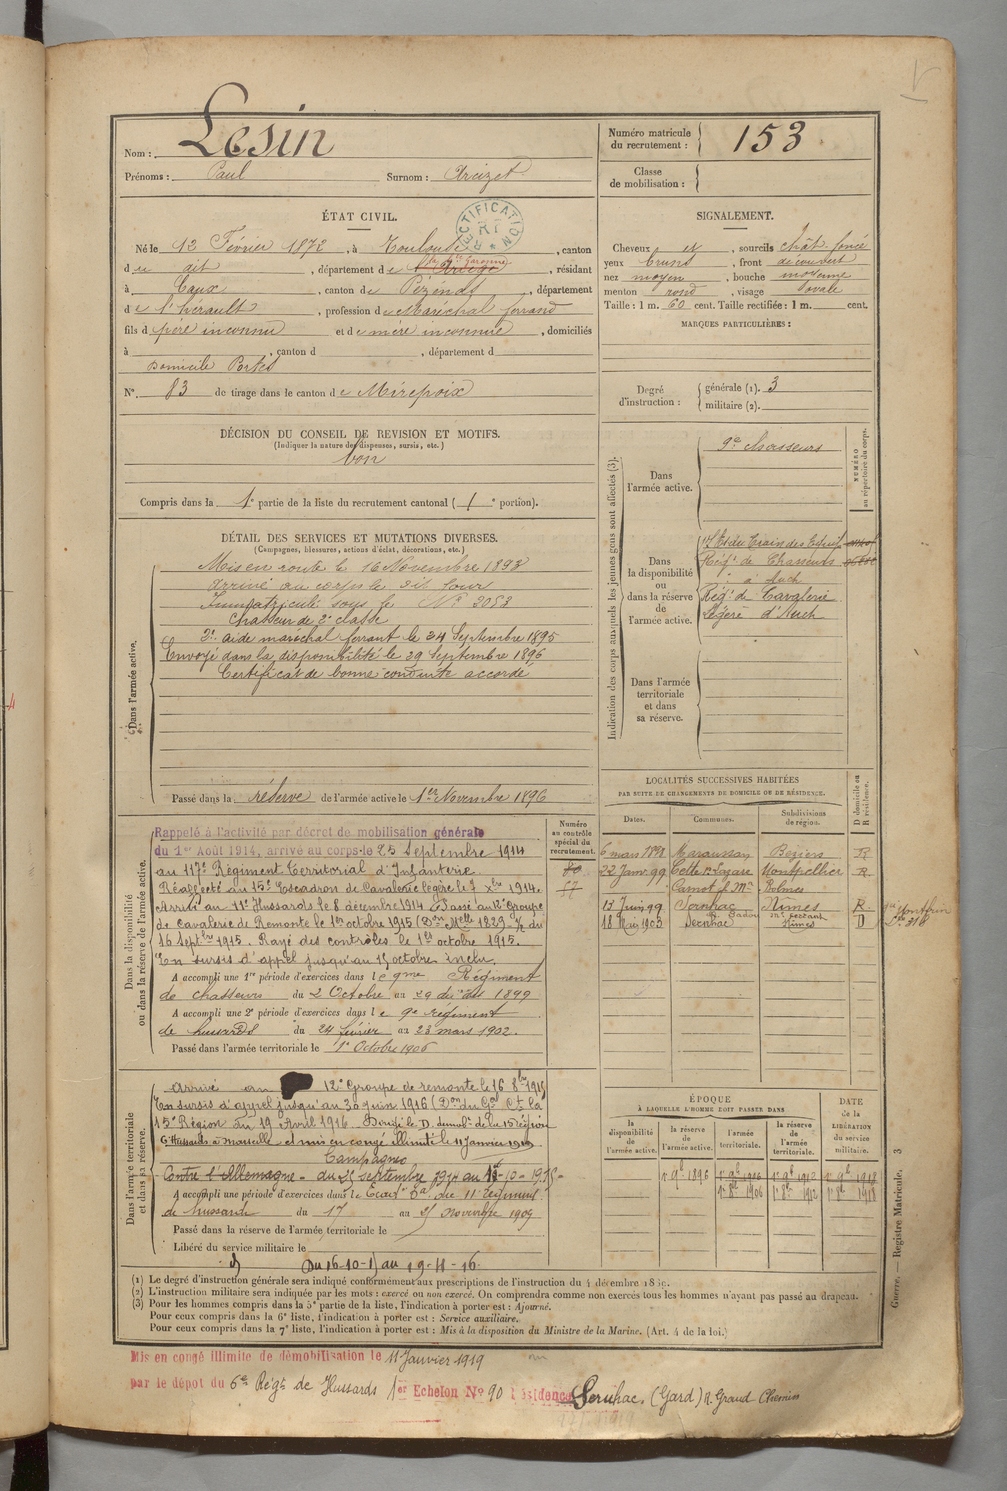 Nom : Lesin
Prénoms : Paul Surnom : Arcizet
Numéro matricule du recrutement : 153
Classe de mobilisation :
ÉTAT CIVIL.
RECTIFICATION
Né le 12 Février 1872, à Toulouse, canton
du dit, département de l'Ariège, résidant
Hte Garonne
à Caux, canton de Pézenas, département
de l'hérault, profession de Maréchal ferrand
fils d père inconnu et de mère inconnue, domiciliés
à , canton d , département d
Domicile Portes
N° 83 de tirage dans le canton de Mirepoix
SIGNALEMENT.
Cheveux et , sourcils chât. foncé
yeux bruns , front découvert
nez moyen , bouche moyenne
menton rond , visage ovale
Taille : 1 m. 60 cent. Taille rectifiée : 1 m. cent.
MARQUES PARTICULIÈRES :
Degré d'instruction : générale (1). 3
militaire (2).
DÉCISION DU CONSEIL DE REVISION ET MOTIFS.
(Indiquer la nature des dispenses, sursis, etc.)
bon
Compris dans la 1e partie de la liste du recrutement cantonal ( 1 e portion).
Indication des corps auxquels les jeunes gens sont affectés (3).
NUMÉRO au répertoire du corps.
Dans l'armée active.
9e chasseurs
Dans la disponibilité ou dans la réserve de l'armée active.
Régt de Chasseurs
à Auch
Régt de Cavalerie
Légère d'Auch
Dans l'armée territoriale et dans sa réserve.
DÉTAIL DES SERVICES ET MUTATIONS DIVERSES.
(Campagnes, blessures, actions d'éclat, décorations, etc.)
Dans l'armée active.
Mis en route le 16 Novembre 1893
arrivé au corps le dit jour
Immatriculé sous le N° 3053
chasseur de 2e classe
2e aide maréchal ferrant le 24 Septembre 1895
Envoyé dans la disponibilité le 29 Septembre 1896
Certificat de bonne conduite accordé
Passé dans la réserve de l'armée active le 1er Novembre 1896
LOCALITÉS SUCCESSIVES HABITÉES
PAR SUITE DE CHANGEMENTS DE DOMICILE OU DE RÉSIDENCE.
D domicile ou R résidence.
Dates. Communes. Subdivisions de région.
6 mars 1898 Maraussan Béziers R
22 Janv 99 Cette r. Lazare Montpellier R
17 Juin 99 Sernhac Nîmes R
18 Mai 1903 Sernhac Nîmes D
Numéro au contrôle spécial du recrutement.
Dans la disponibilité ou dans la réserve de l'armée active.
Rappelé à l'activité par décret de mobilisation générale
du 1er Août 1914, arrivé au corps le 25 Septembre 1914
au 117e Régiment Territorial d'Infanterie.
Réaffecté au 15e Escadron de Cavalerie légère le 7 Xbre 1914.
Arrivé au 11e Hussards le 8 décembre 1914 Passé au 12e Groupe
de cavalerie de Remonte le 1er octobre 1915
16 Septbre 1915. Rayé des contrôles le 1er octobre 1915.
En sursis d'appel jusqu'au 15 octobre inclu.
A accompli une 1re période d'exercices dans le 9me Régiment
de chasseurs du 2 Octobre au 29 du dit 1899
A accompli une 2e période d'exercices dans le 9e régiment
de hussards du 24 février au 23 mars 1902.
Passé dans l'armée territoriale le 1er Octobre 1906
Dans l'armée territoriale et dans sa réserve.
arrivé au 12e Groupe de remonte le 16 8bre 1915
En sursis d'appel jusqu'au 30 juin 1916
15e Région du 19 Avril 1916.
et mis en congé illimité le 11 Janvier 1919
Campagnes
Contre l'Allemagne - du 25 septembre 1914 au
A accompli une période d'exercices dans le
de hussards du 17 au 25 Novembre 1909
Passé dans la réserve de l'armée territoriale le
Libéré du service militaire le
Du 16-10-15 au 19-4-16.
ÉPOQUE
À LAQUELLE L'HOMME DOIT PASSER DANS
la disponibilité de l'armée active. la réserve de l'armée active. l'armée territoriale. la réserve de l'armée territoriale.
DATE de la LIBÉRATION du service militaire.
1er 9b 1896 1er 9b 1906 1er 9b 1912 1er 9b 1918
1er 8b 1906 1er 8b 1912 1er 8b 1918
Guerre. — Registre Matricule. 3
(1) Le degré d'instruction générale sera indiqué conformément aux prescriptions de l'instruction du 4 décembre 1889.
(2) L'instruction militaire sera indiquée par les mots : exercé ou non exercé. On comprendra comme non exercés tous les hommes n'ayant pas passé au drapeau.
(3) Pour les hommes compris dans la 5e partie de la liste, l'indication à porter est : Ajourné.
Pour ceux compris dans la 6e liste, l'indication à porter est : Service auxiliaire.
Pour ceux compris dans la 7e liste, l'indication à porter est : Mis à la disposition du Ministre de la Marine. (Art. 4 de la loi.)
Mis en congé illimité de démobilisation le 11 Janvier 1919
par le dépôt du 6e Régt de Hussards 1er Echelon N° 90 Résidence Sernhac (Gard) R. Grand Chemin